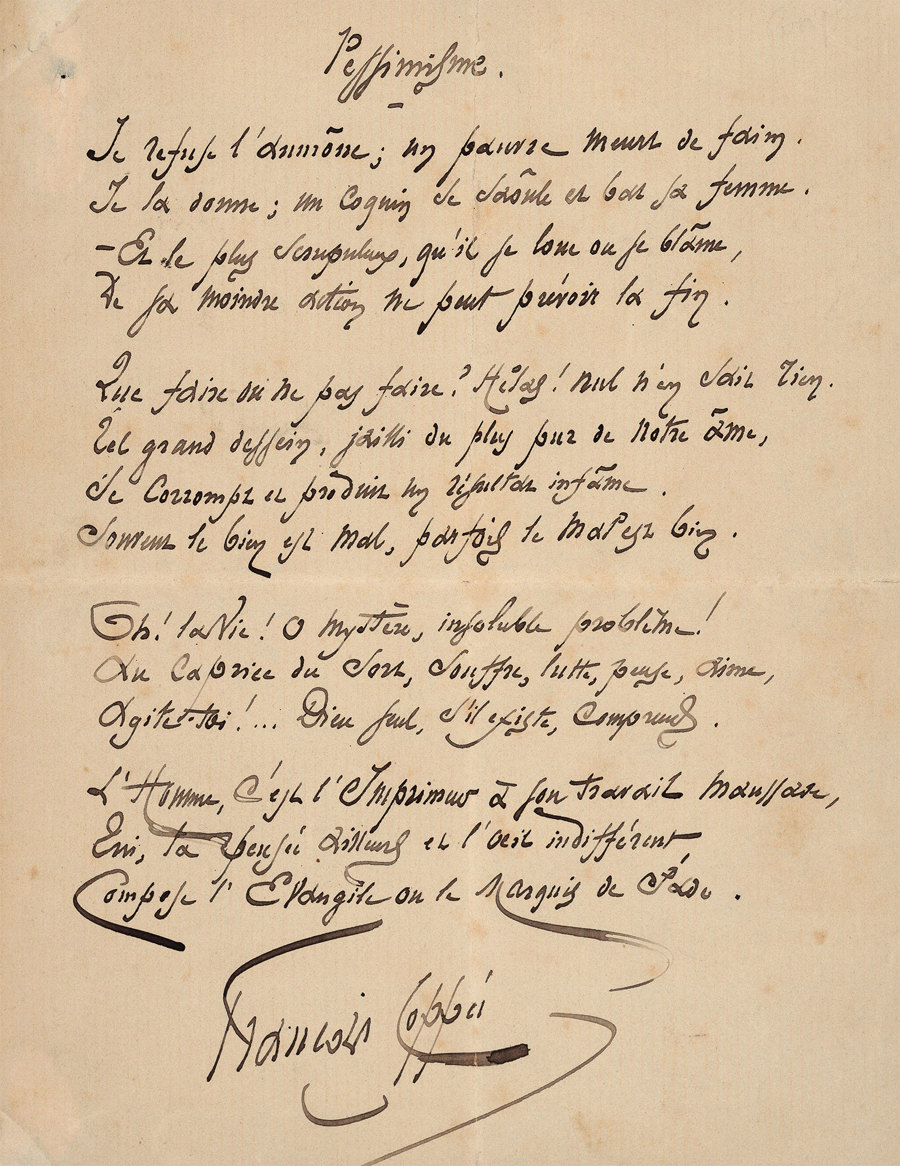 Pessimisme.
Je refuse l'aumône ; un pauvre meurt de faim.
Je la donne ; un coquin se saoûle et bat sa femme.
— Et le plus scrupuleux, qu'il se loue ou se blâme,
De sa moindre action ne peut prévoir la fin.
Que faire ou ne pas faire ? Hélas ! nul n'en sait rien.
Tel grand dessein, jailli du plus pur de notre âme,
Se corrompt et produit un résultat infâme.
Souvent le bien est mal, parfois le mal est bien.
Oh ! la Vie ! O mystère, insoluble problème !
Au caprice du sort, souffre, lutte, pense, aime,
Agite-toi !... Dieu seul, s'il existe, comprend.
L'Homme, c'est l'Imprimeur à son travail maussade,
Qui, la pensée ailleurs et l'oeil indifférent
Compose l'Evangile ou le Marquis de Sade.
François Coppée